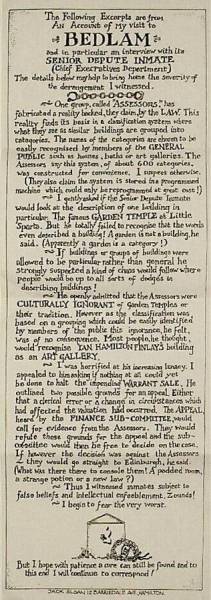 The Following Excerpts are from
An Account of My Visit to
BEDLAM
and in particular an interview with its
SENIOR DEPUTE INMATE
(Chief Executives Department)
The details below may help to bring home the severity of
the derangement I witnessed.
One group, called "ASSESSORS", has
fabricated a reality backed, they claim, by the LAW. This
reality finds its basis in a classification system where
what they see as similar buildings are grouped into
categories. The names of the categories are chosen to be
easily recognised by members of the GENERAL
PUBLIC such as homes, banks or art galleries. The
Assessors say this system, of about 600 categories,
was constructed for convenience, I suspect otherwise.
(They also claim the system is stored in a programmed
machine which could only be reprogrammed at great cost!)
I gently asked if the Senior Depute Inmate
would look at the description of one building in
particular. The famous GARDEN TEMPLE at Little
Sparta. But he totally failed to recognise that the words
even described a building! A garden is not a building, he
said. (Apparently a garden is a category!)
If buildings or groups of buildings were
allowed to be particular rather than general he
strongly suspected a kind of chaos would follow where
people would be up to all sorts of dodges in
describing buildings!
He openly admitted that the Assessors were
CULTURALLY IGNORANT of Garden Temples or
their tradition. However as the classification was
based on a grouping which could be easily identified
by members of the public this ignorance, he felt,
was of no consequence. Most people, he thought,
would recognise IAN HAMILTON FINLAY'S building
as an ART GALLERY.
I was horrified at his increasing lunacy. I
appealed to him asking if nothing at all could yet
be done to halt the impending WARRANT SALE. He
outlined two possible grounds for an appeal. Either
that a clerical error or a change in circumstances which
had affected the valuation had occurred. The APPEAL,
heard by the FINANCE SUB-COMMITTEE, would
call for evidence from the Assessors. They would
refute these grounds for the appeal and the sub-
committee would then be free to decide on the case.
If however the decision was against the Assessors
they would go straight to Edinburgh, he said.
(What was there there to console them? A padded room,
a strange potion or a new law?)
Thus I witnessed inmates subject to
false beliefs and intellectual enfeeblement. Zounds!
I begin to fear the very worst.
But I hope with patience a cure can still be found and to
this end I will continue to correspond!
JACK SLOAN 12 BARRIEDALE AVE, HAMILTON.